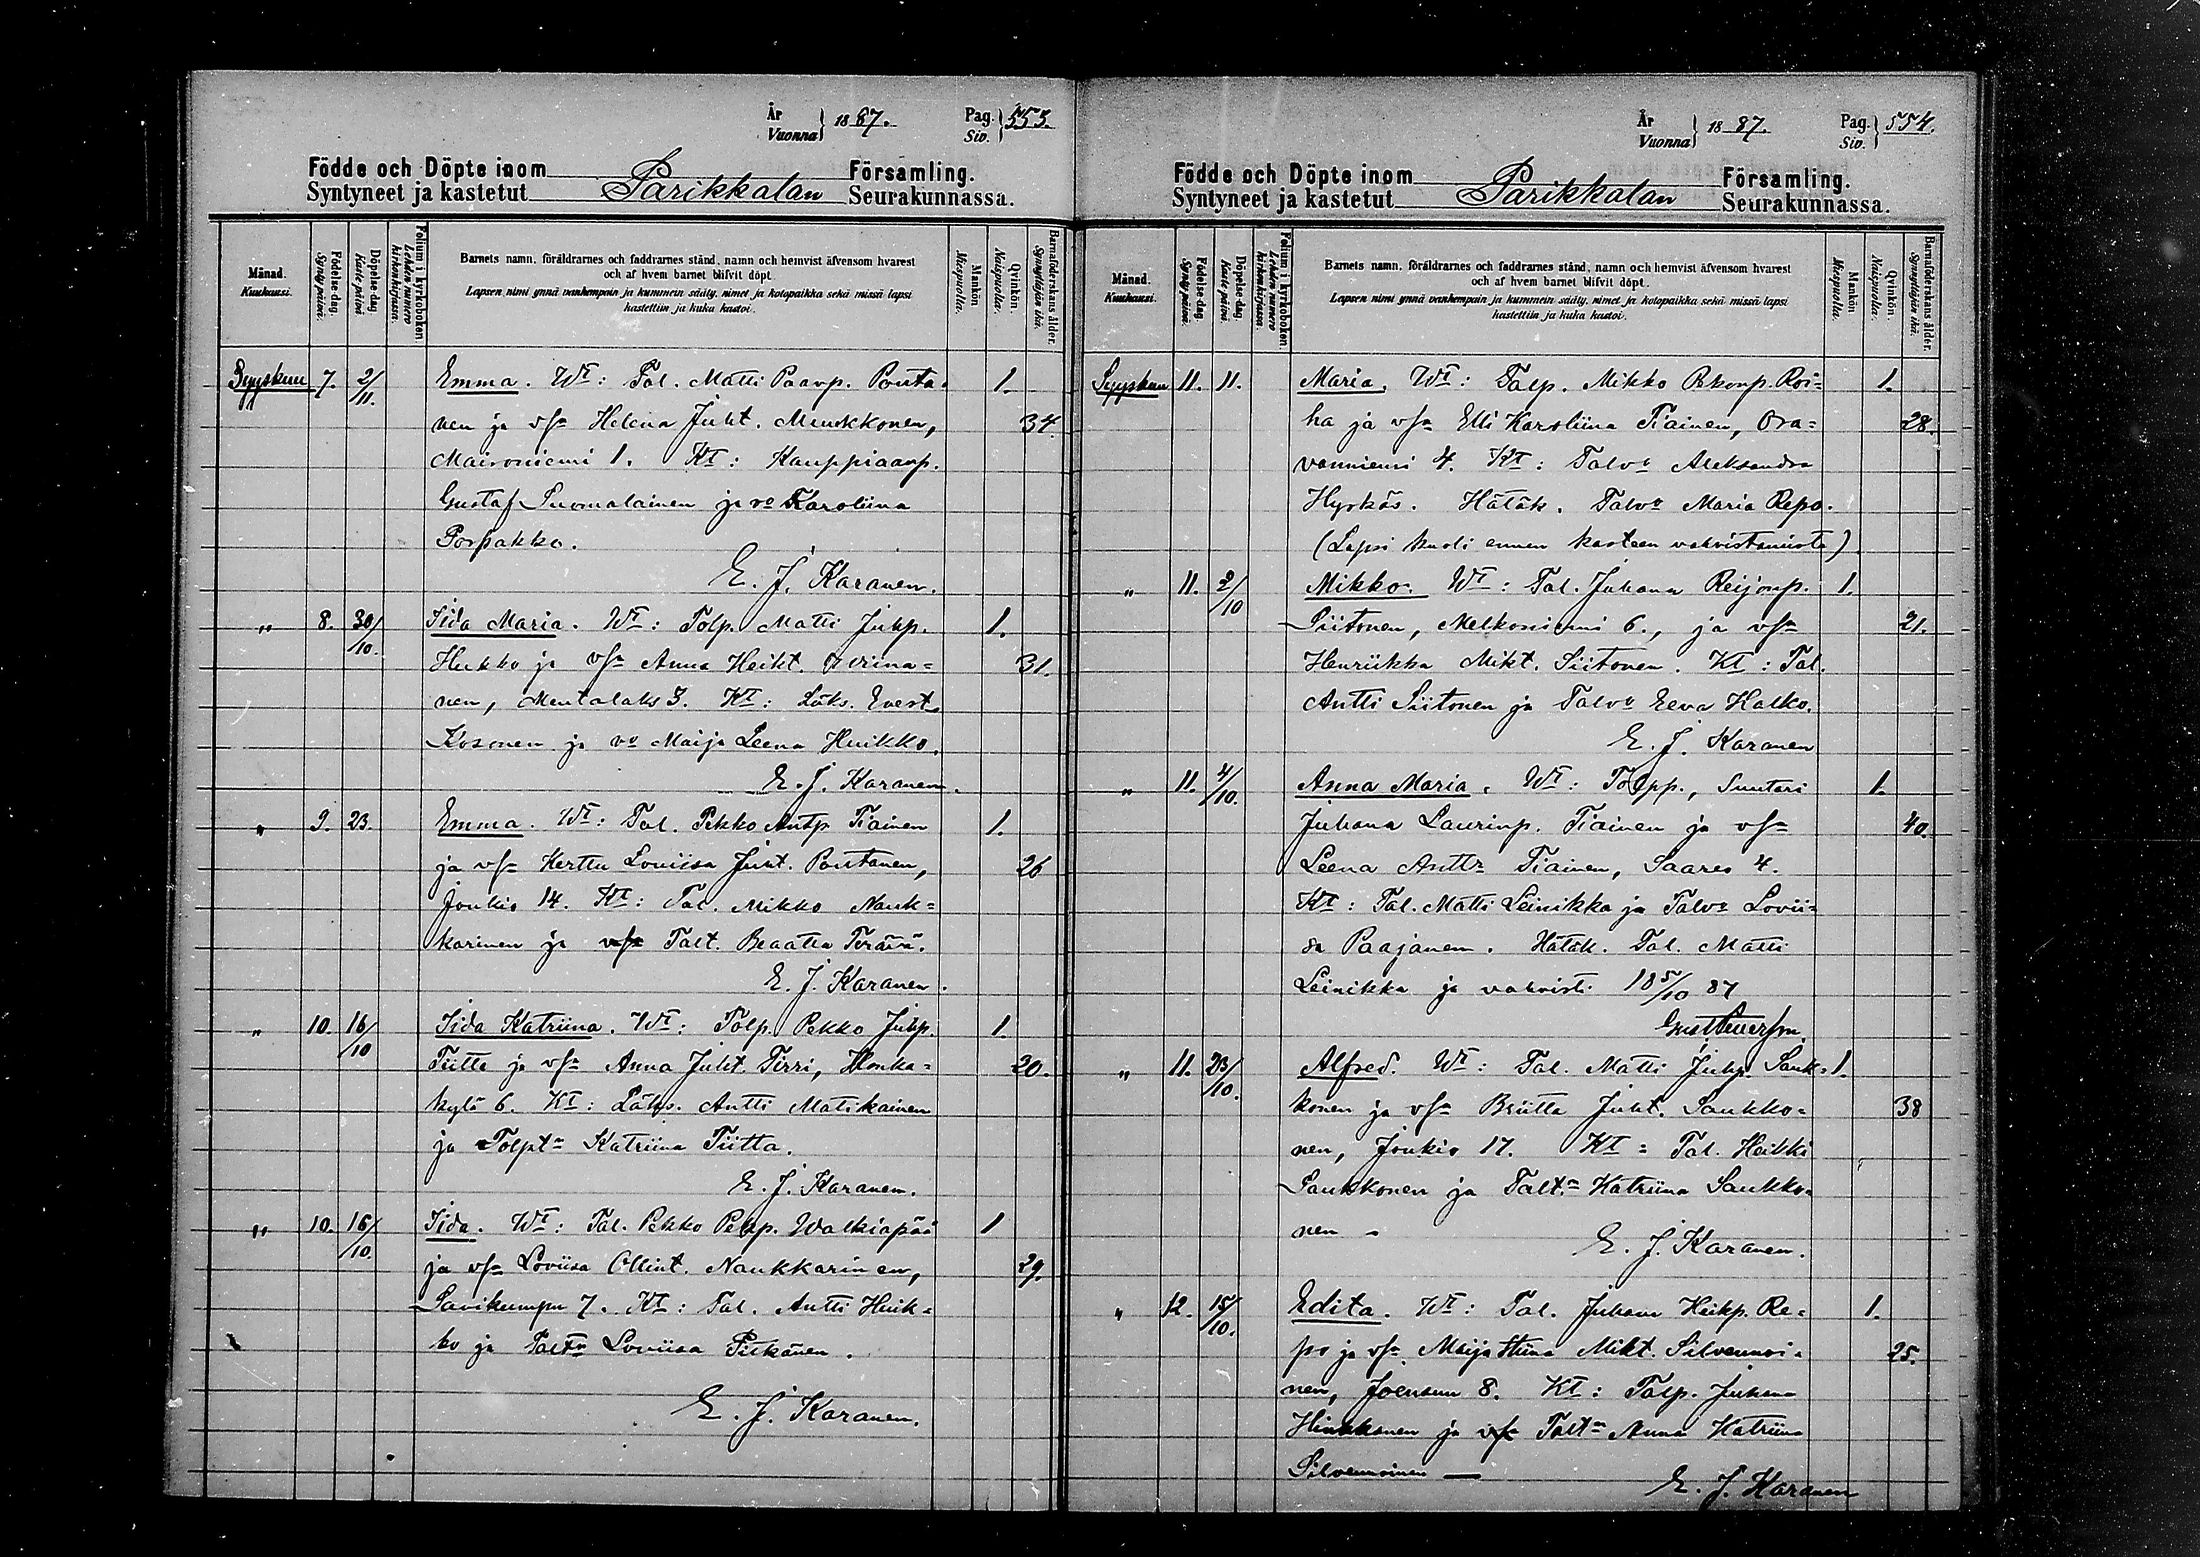 År
Vuonna } 1887. Pag.
Siv. } 553.
Födde och Döpte inom Parikkalan Församling.
Syntyneet ja kastetut Seurakunnassa.
Månad.
Kuukausi.
Födelse-dag.
Synty päivä.
Döpelse-dag.
Kaste päivä.
Folium i kyrkoboken
Lehden numero kirkonkirjassa.
Barnets namn, föräldrarnes och faddrarnes stånd, namn och hemvist äfvensom hvarest
och af hvem barnet blifvit döpt.
Lapsen nimi ynnä vanhempain ja kummein sääty, nimet ja kotopaikka sekä missä lapsi
kastettiin ja kuka kastoi.
Mankön
Miespuolia.
Qvinkön.
Naispuolia.
Barnaföderskans ålder.
Synnyttäjän ikä.
Syyskuu 7. 2/11. Emma. Wt: Tal. Matti Paavp. Ponta- 1.
nen ja vsa Helena Juht. Munkkonen, 34.
Maironiemi 1. Kt: Kauppiaanp.
Gustaf Suomalainen ja vo Karoliina
Porpakko.
E. J. Karanen.
" 8. 30/10. Iida Maria. Wt: Tolp. Matti Juhp. 1.
Hukko ja vsa Anna Heikt. 31.
nen, Mentalaks 3. Kt: Läks. Evert
Kosonen ja vo Maija Leena Huikko.
E. J. Karanen.
" 9. 23. Emma. Wt: Tal. Pekko Antp. Tiainen 1.
ja vsa Kerttu Loviisa Juht. Pontanen, 26
Joukio 14. Kt: Tal. Mikko Nauk-
karinen ja Talt. Beaatta Terävä.
E. J. Karanen.
" 10. 16/10 Iida Katriina. Wt: Tolp. Pekko Juhp. 1.
Tiitta ja vsa Anna Juht. Tirri, Honka- 20.
kylä 6. Kt: Läks. Antti Matikainen
ja Tolpt. Katriina Tiitta.
E. J. Karanen.
" 10. 16/10. Iida. Wt: Tal. Pekko Pekp. Walkiapää 1
ja vsa Loviisa Ollint. Naukkarinen, 29.
Savikumpu 7. Kt: Tal. Antti Huik-
ko ja Taltr Loviisa Pitkänen.
E. J. Karanen.
År
Vuonna } 1887. Pag.
Siv. } 554.
Födde och Döpte inom Parikkalan Församling.
Syntyneet ja kastetut Seurakunnassa.
Månad.
Kuukausi.
Födelse-dag.
Synty päivä.
Döpelse-dag.
Kaste päivä.
Folium i kyrkoboken
Lehden numero kirkonkirjassa.
Barnets namn, föräldrarnes och faddrarnes stånd, namn och hemvist äfvensom hvarest
och af hvem barnet blifvit döpt.
Lapsen nimi ynnä vanhempain ja kummein sääty, nimet ja kotopaikka sekä missä lapsi
kastettiin ja kuka kastoi.
Mankön
Miespuolia.
Qvinkön.
Naispuolia.
Barnaföderskans ålder.
Synnyttäjän ikä.
Syyskuu 11. 11. Maria. Wt: Talp. Mikko Roi- 1.
ha ja vsa Elli Karoliina Tiainen, Ora- 28.
vanniemi 4. Kt: Talvo Aleksandra
Hyrkäs. Hätäk. Talvo Maria Repo.
(Lapsi kuoli ennen kasteen vahvistamista)
" 11. 2/10 Mikko. Wt: Tal. Juhana Reijonp. 1.
Siitonen, Melkoniemi 6., ja vsa 21.
Henriikka Mikt. Siitonen. Kt: Tal.
Antti Siitonen ja Talvo Eeva Halko.
E. J. Karanen
" 11. 4/10. Anna Maria. Wt: Tolpp., Suutari 1.
Juhana Laurinp. Tiainen ja vsa 40.
Leena Anttr Tiainen, Saares 4.
Kt: Tal. Matti Leinikka ja Talvo Lovii-
sa Paajanen. Hätäk. Tal. Matti
Leinikka ja vahvisti 18 5/10 87
" 11. 23/10. Alfred. Wt: Tal. Matti Juhp. Sauk- 1.
konen ja vsa Briitta Juht. Saukko- 38
nen, Joukio 17. Kt: Tal. Heikki
Saukkonen ja Talt. Katriina Saukko-
nen -
E. J. Karanen.
" 12. 15/10. Edita. Wt: Tal. Juhana Heikp. Re- 1.
po ja vsa Maija Stiina Mikt. Silvennoi- 25.
nen, Joensuu 8. Kt: Talp. Juhana
Hinkkanen ja Talt. Anna Katriina
Silvennoinen —
E. J. Karanen